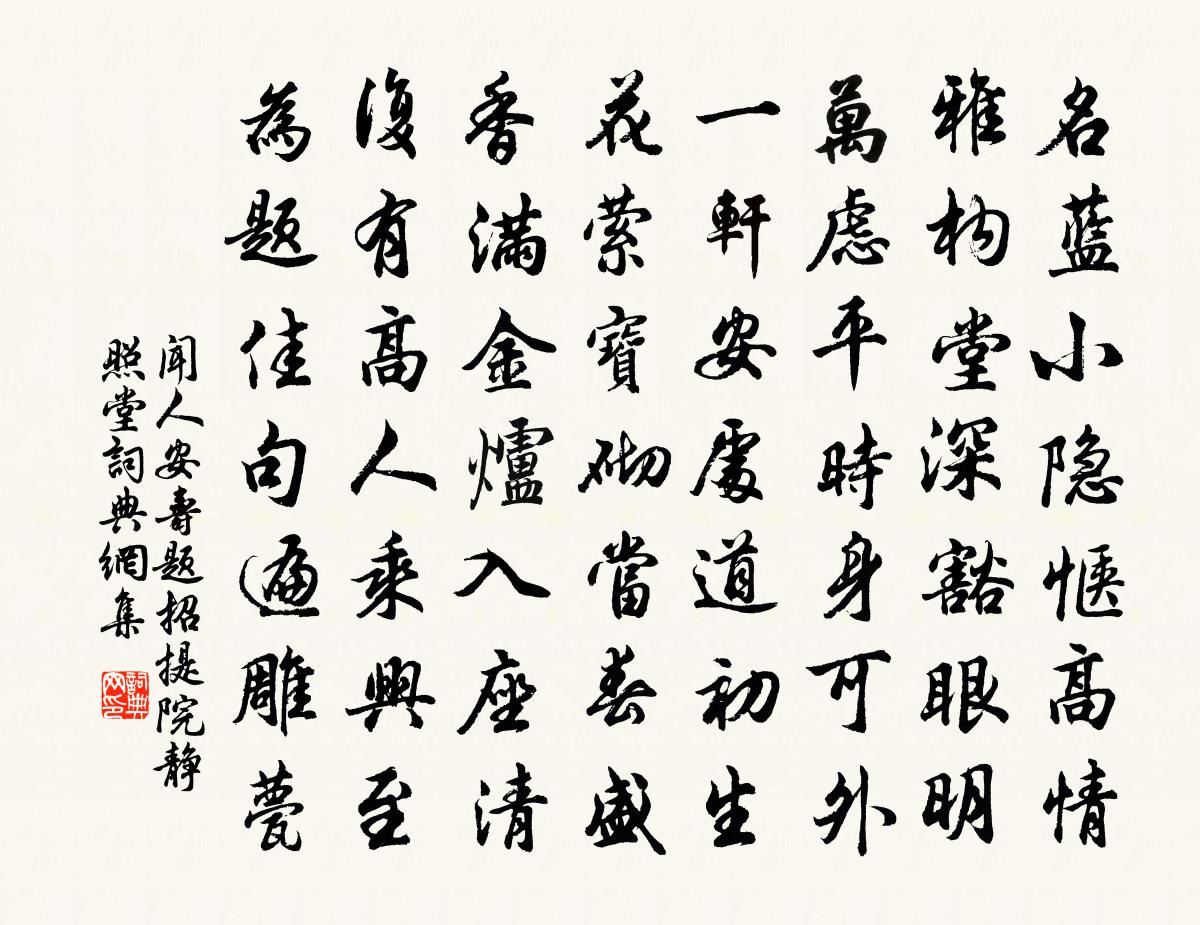 名藍小隐惬高情
雅构堂深豁眼明
萬慮平時身可外
一軒安處道初生
花萦寶砌當春盛
香滿金爐入座清
復有高人乘興至
為题佳句遍雕甍
闻人安壽题招提院静
照堂詞典網集
詞典网印